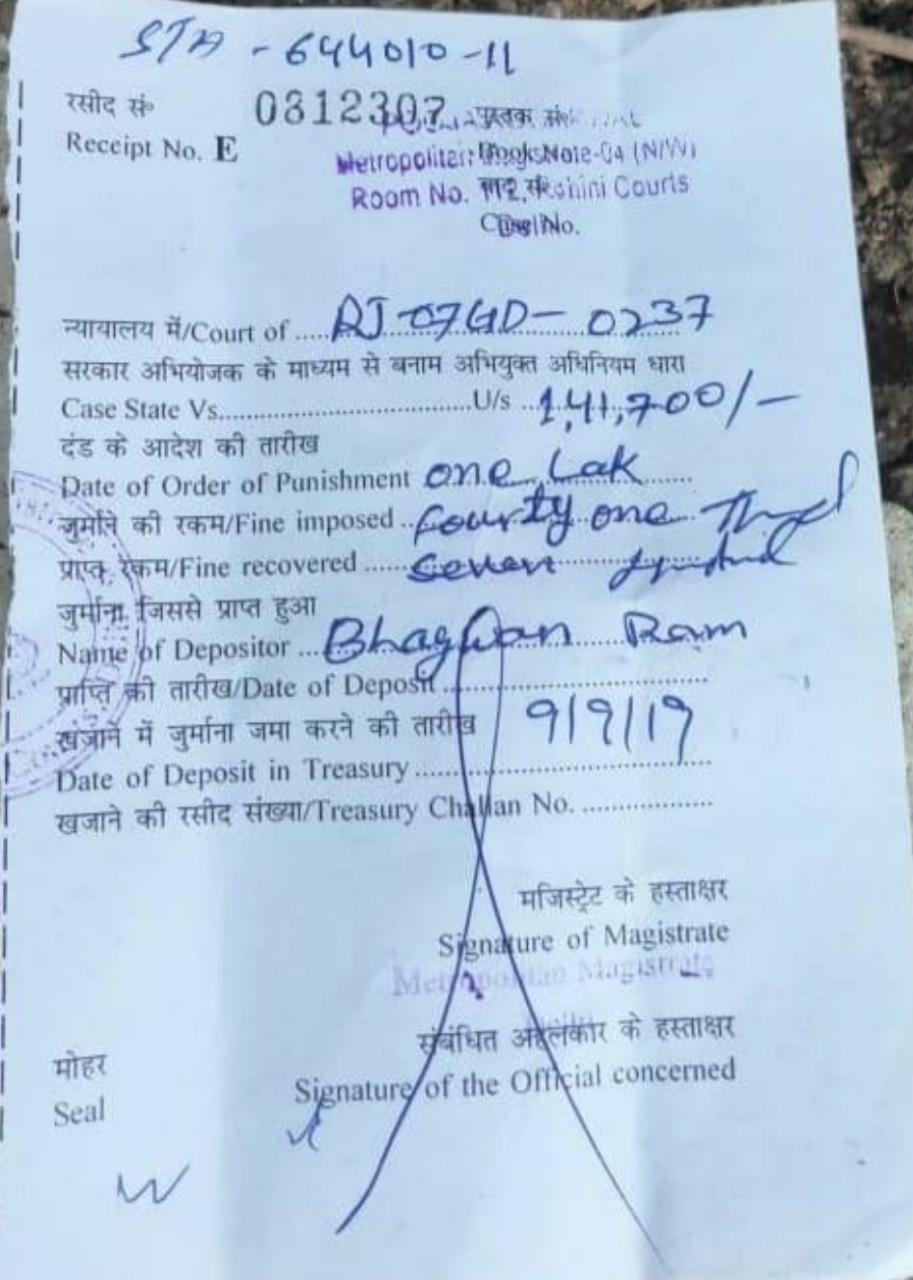 STA - 644010-11
रसीद सं॰ 0312307 पुस्तक सं॰
Receipt No. E
Metropolitan Book No. te-04 (N/W)
Room No. 112, Rohini Courts
Delhi No.
न्यायालय में/Court of ..... RJ-07GD- 0237
सरकार अभियोजक के माध्यम से बनाम अभियुक्त अधिनियम धारा
Case State Vs. U/s 1,41,700/-
दंड के आदेश की तारीख
Date of Order of Punishment one Lak
जुर्माने की रकम/Fine imposed .. Fourty one
प्राप्त रकम/Fine recovered ...... Seven
जुर्माना जिससे प्राप्त हुआ
Name of Depositor ... Bhagwan Ram
प्राप्ति की तारीख/Date of Deposit
खजाने में जुर्माना जमा करने की तारीख 9/9/19
Date of Deposit in Treasury
खजाने की रसीद संख्या/Treasury Challan No.
मजिस्ट्रेट के हस्ताक्षर
Signature of Magistrate
Metropolitan Magistrate
संबंधित अहलकार के हस्ताक्षर
मोहर
Signature of the Official concerned
Seal